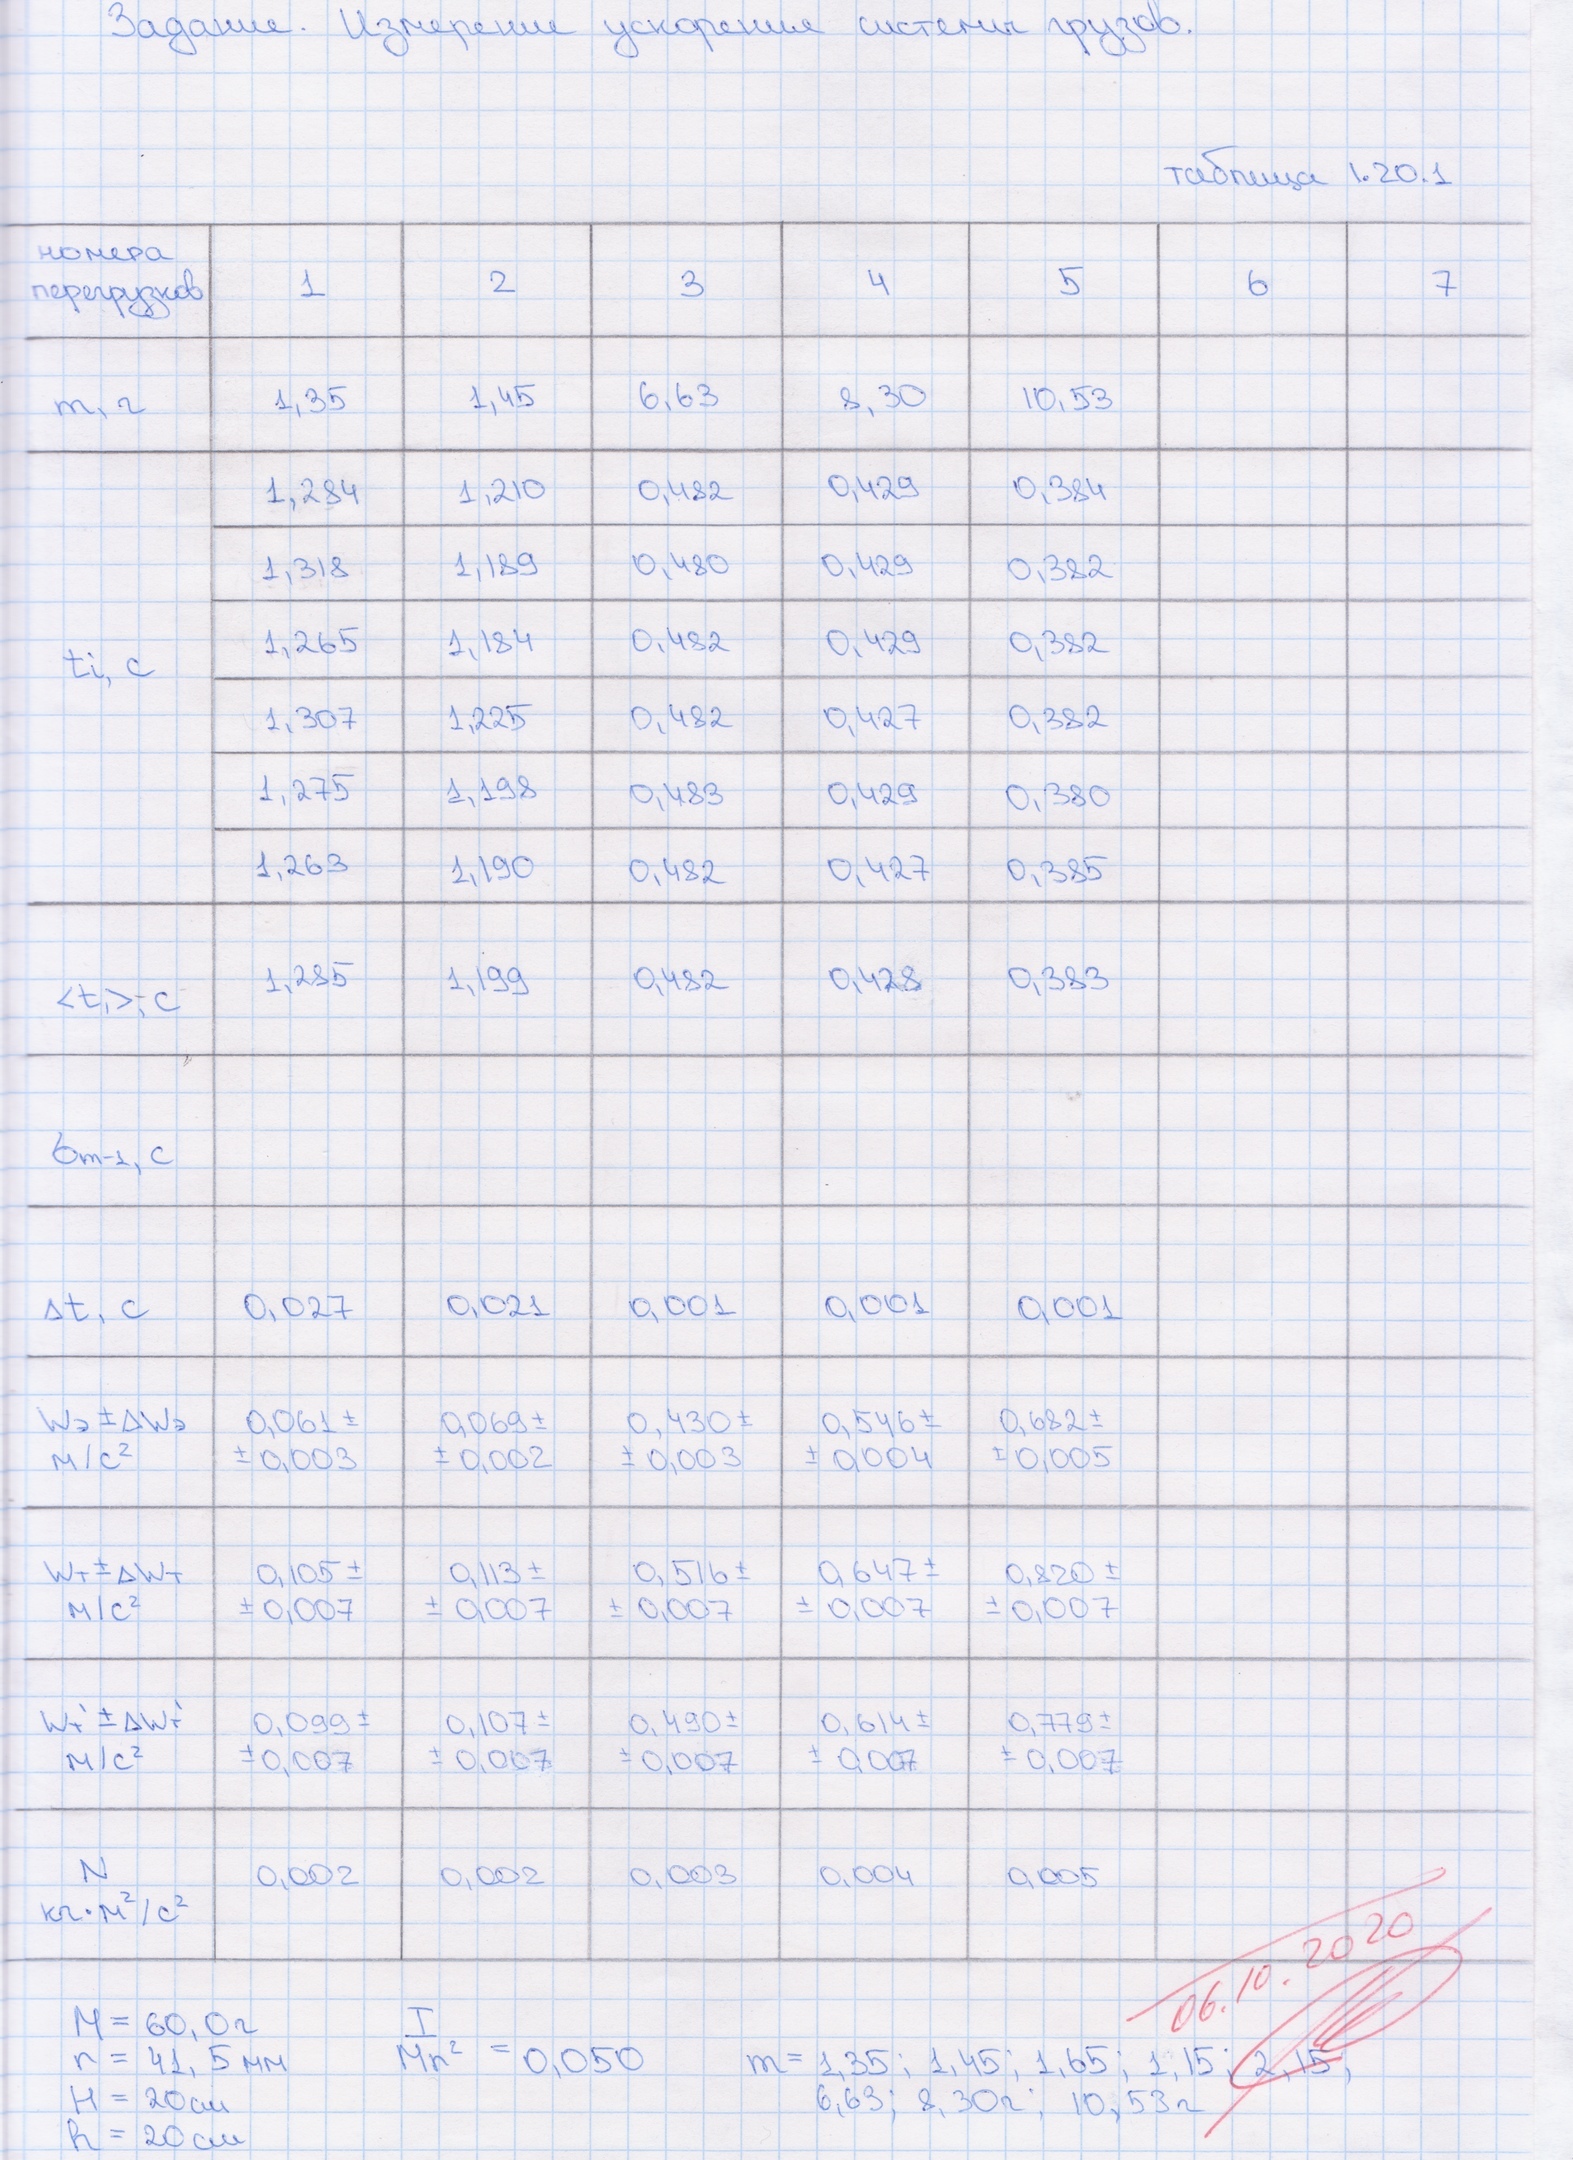 Задание. Измерение ускорения системы грузов.
таблица 1.20.1
номера перегрузков 1 2 3 4 5 6 7
m, г 1,35 1,45 6,63 8,30 10,53
ti, c
1,284 1,210 0,482 0,429 0,384
1,318 1,189 0,480 0,429 0,382
1,265 1,184 0,482 0,429 0,382
1,307 1,225 0,482 0,427 0,382
1,275 1,198 0,483 0,429 0,380
1,263 1,190 0,482 0,427 0,385
<t,>, c 1,285 1,199 0,482 0,428 0,383
σm-1, c
Δt, c 0,027 0,021 0,001 0,001 0,001
Wэ ± ΔWэ 0,061 ± 0,069 ± 0,430 ± 0,546 ± 0,682 ±
м/c² ± 0,003 ± 0,002 ± 0,003 ± 0,004 ± 0,005
Wт ± ΔWт 0,105 ± 0,113 ± 0,516 ± 0,647 ± 0,820 ±
м/c² ± 0,007 ± 0,007 ± 0,007 ± 0,007 ± 0,007
Wт' ± ΔWт' 0,099 ± 0,107 ± 0,490 ± 0,614 ± 0,779 ±
м/c² ± 0,007 ± 0,007 ± 0,007 ± 0,007 ± 0,007
N 0,002 0,002 0,003 0,004 0,005
кг·м²/c²
06.10.2020
M = 60,0г
r = 41,5 мм
H = 20см
h = 20см
I / Mr² = 0,050
m = 1,35; 1,45; 1,65; 1,15; 2,15;
6,63; 8,30г; 10,53г